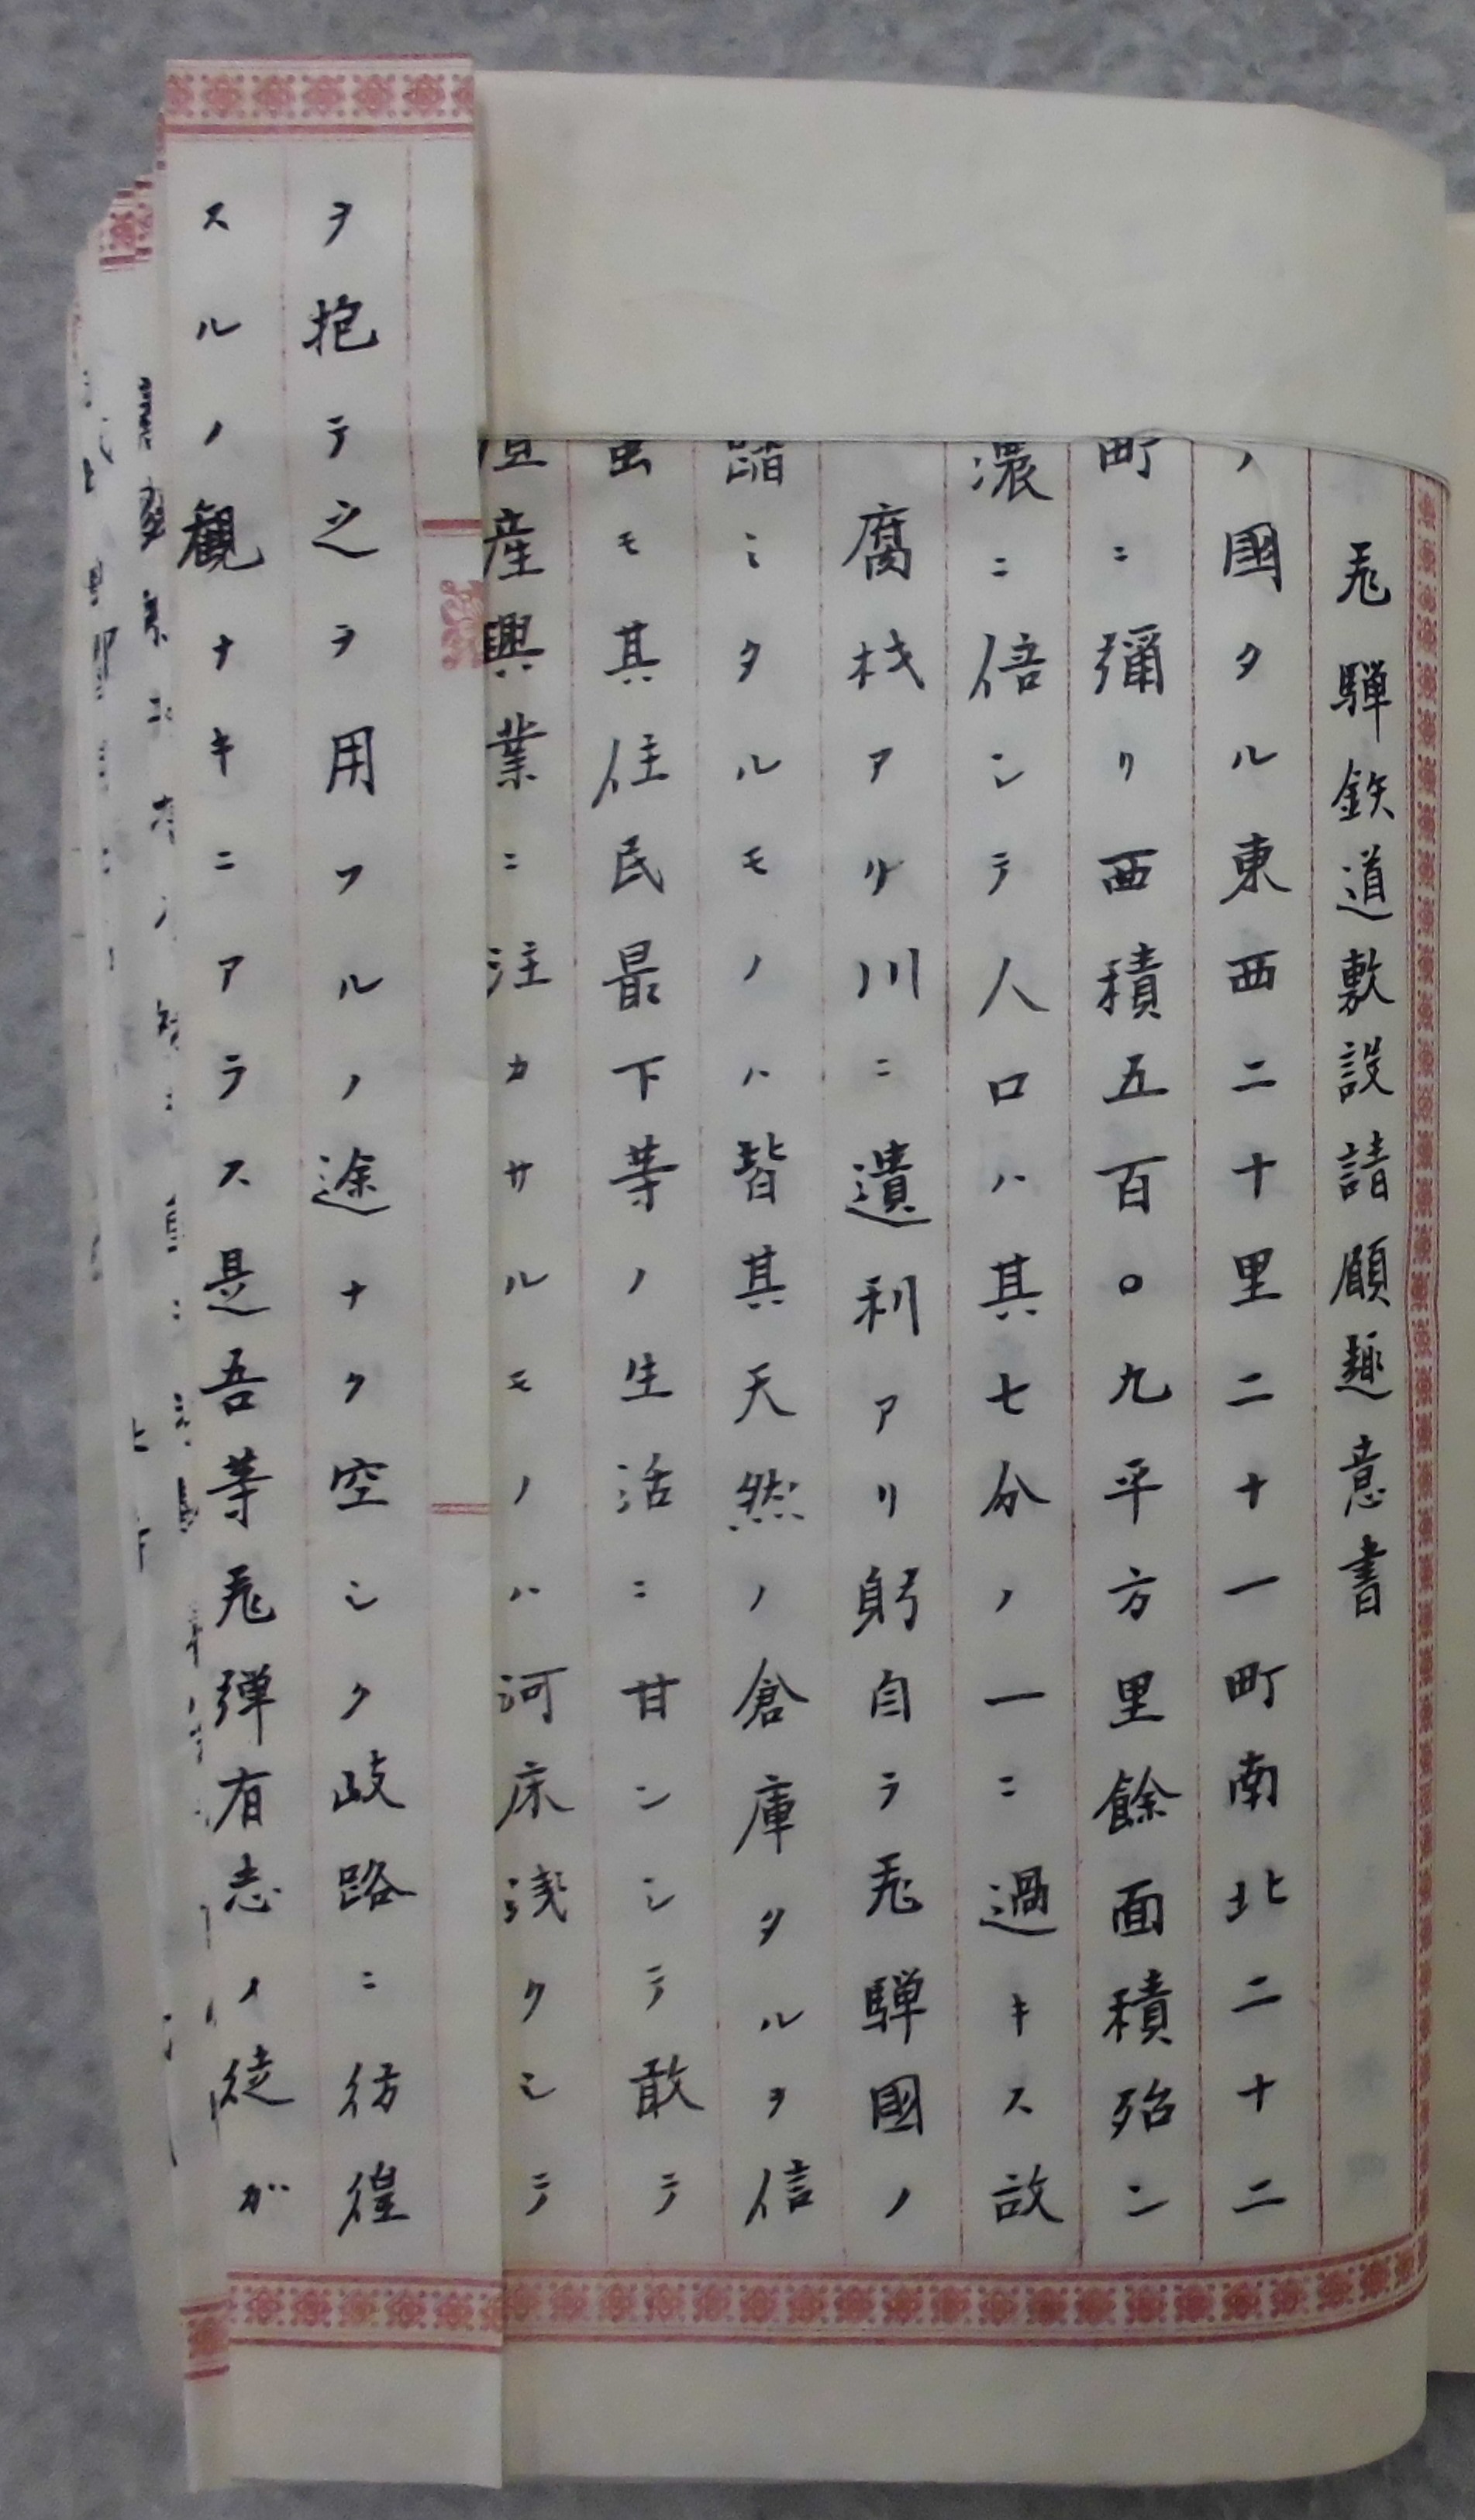 飛騨鉄道敷設請願趣意書
ノ國タル東西二十里二十一町南北二十二
町ニ彌リ西積五百〇九平方里餘面積殆ン
濃ニ倍シテ人口ハ其七分ノ一ニ過キス故
腐材アリ川ニ遺利アリ躬自ラ飛騨國ノ
踏ミタルモノハ皆其天然ノ倉庫タルヲ信
モ其住民最下等ノ生活ニ甘ンシテ敢テ
産興業ニ注カサルモノハ河床浅クシテ
ヲ抱テ之ヲ用フルノ途ナク空シク岐路ニ彷徨
スルノ観ナキニアラス是吾等飛弾有志ノ徒ガ